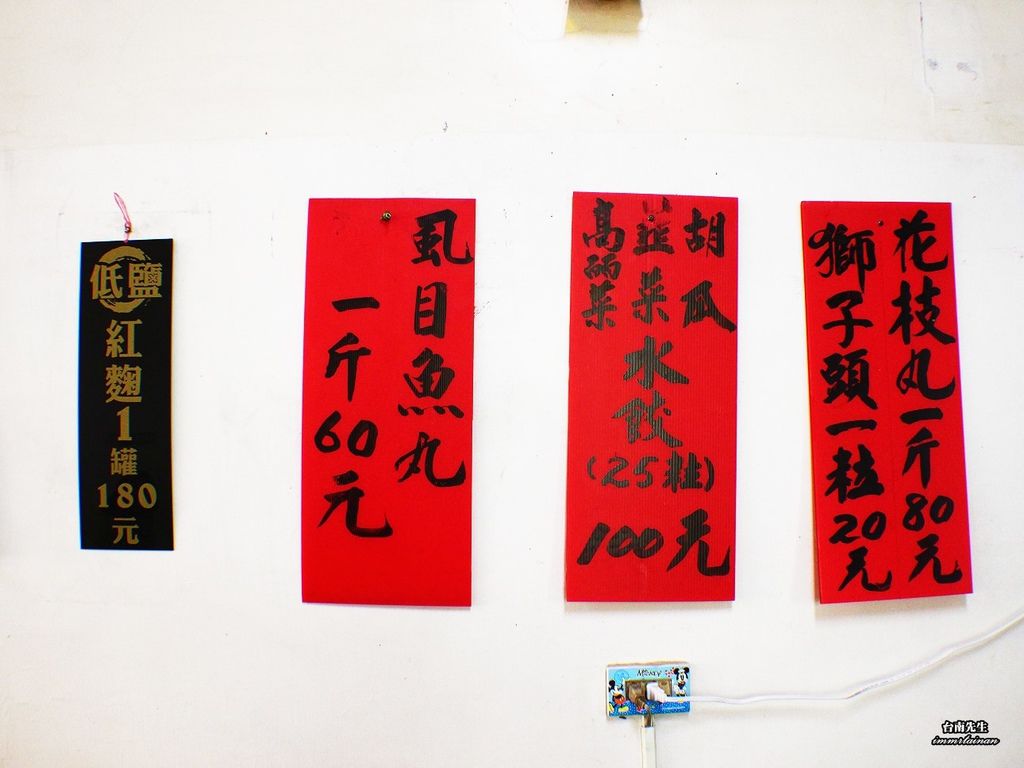 低鹽
紅麴1罐180元
虱目魚丸
一斤60元
胡瓜
韮菜
高丽菜
水餃
(25粒)
100元
花枝丸一斤80元
獅子頭一粒20元
Mickey
台南先生
immrtainan